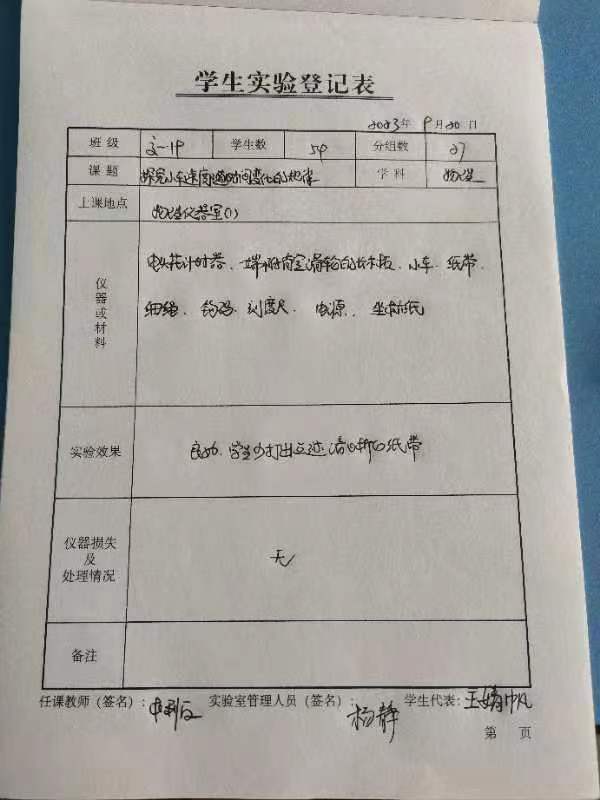 学生实验登记表
2023年 9月20日
班级 学生数 54 分组数 27
课题 探究小车速度随时间变化的规律 学科 物理
上课地点 物理仪器室(1)
仪器或材料
电火花计时器、一端附有定滑轮的长木板、小车、纸带、
细绳、钩码、刻度尺、电源、坐标纸
实验效果 良好、学生少打出点迹清晰的纸带
仪器损失
及
处理情况
无
备注
任课教师（签名）： 实验室管理人员（签名）：杨静 学生代表：
第 页